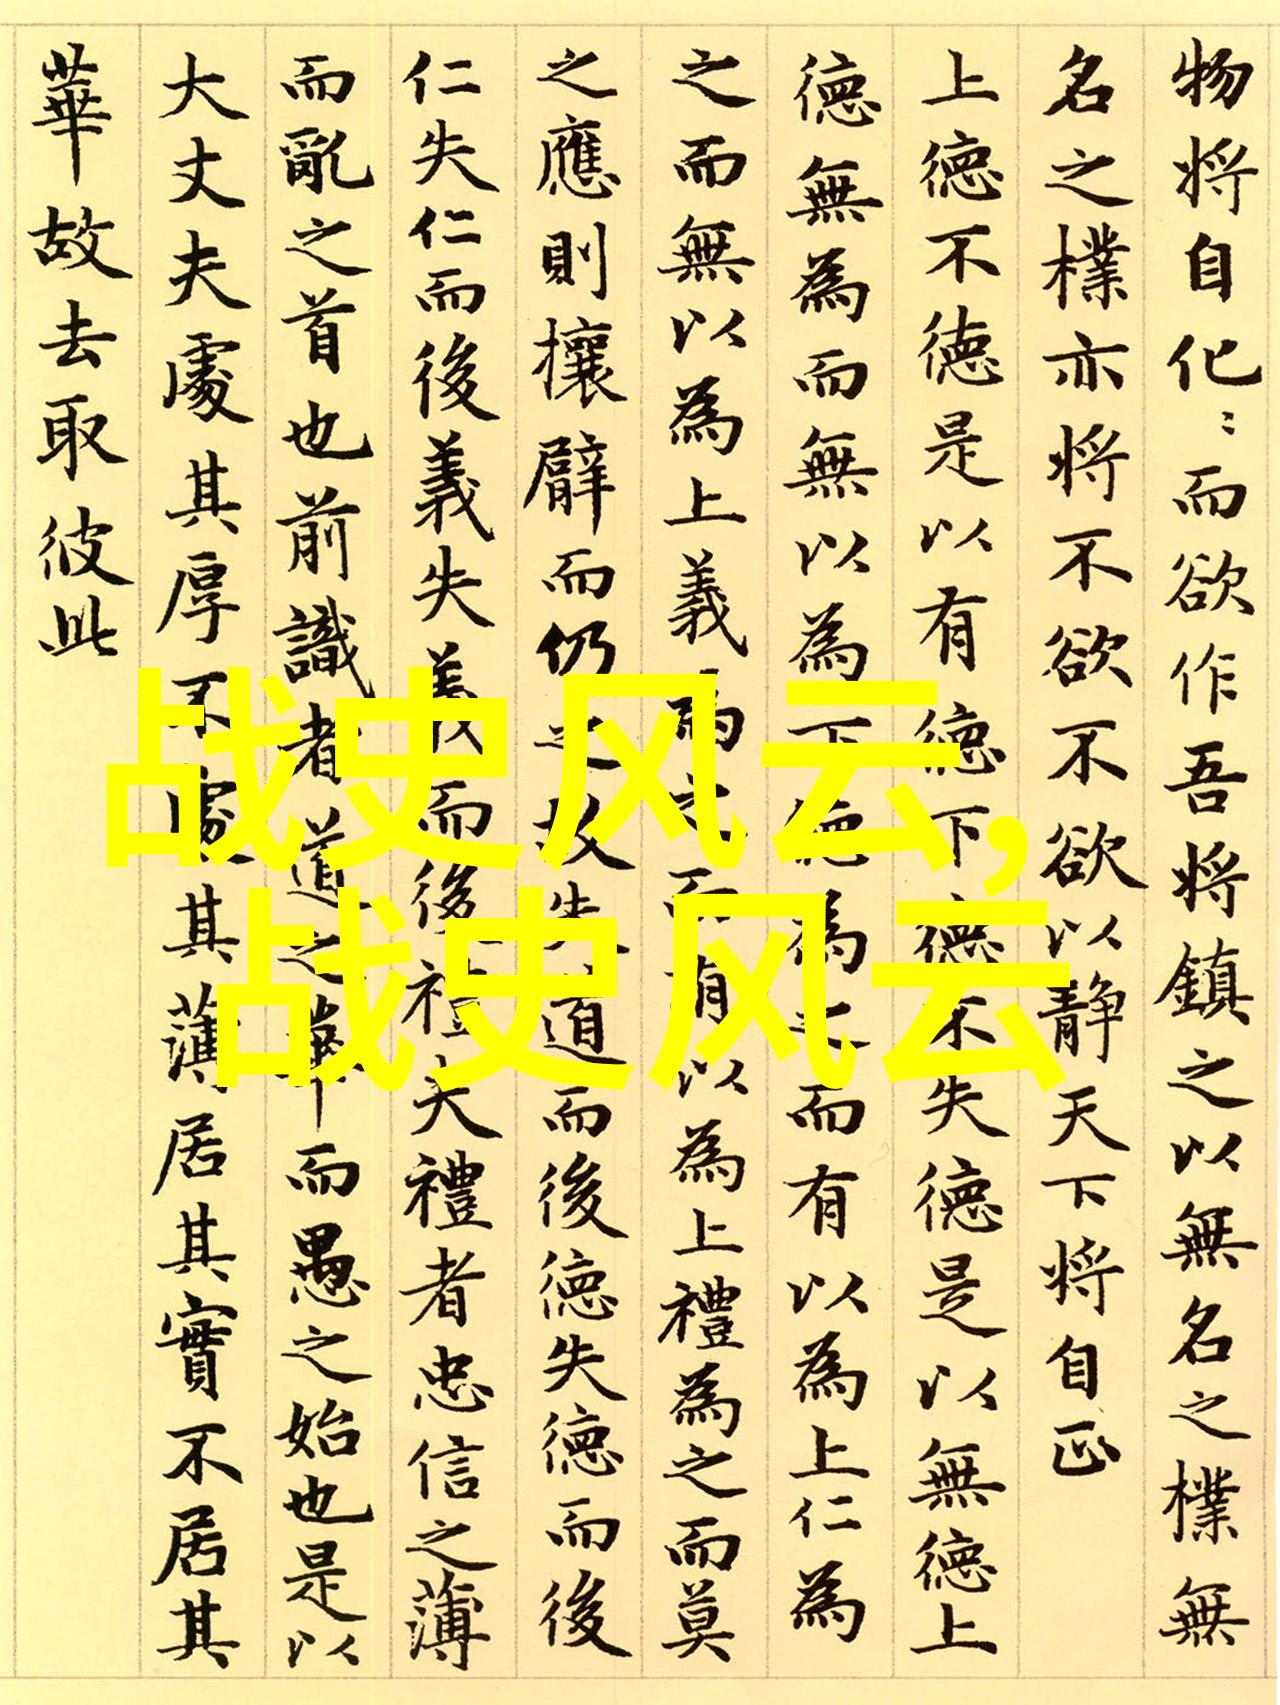 物将自化：而欲作吾将鎮之以無名之樸無
名之樸亦将不欲不欲以静天下将自正
上德不德是以有德下德不失德是以無德上
德無為而無以為下德為之而有以為上仁為
之而無以為上義為之而有以為上禮為之而莫
之應則攘臂而仍之故失道而後德失德而後
仁失仁而後義失義而後禮夫禮者忠信之薄
而亂之首也前識者道之華而愚之始也是以
大丈夫處其厚不處其薄居其實不居其
華故去取彼此
战史风云,
战史风云